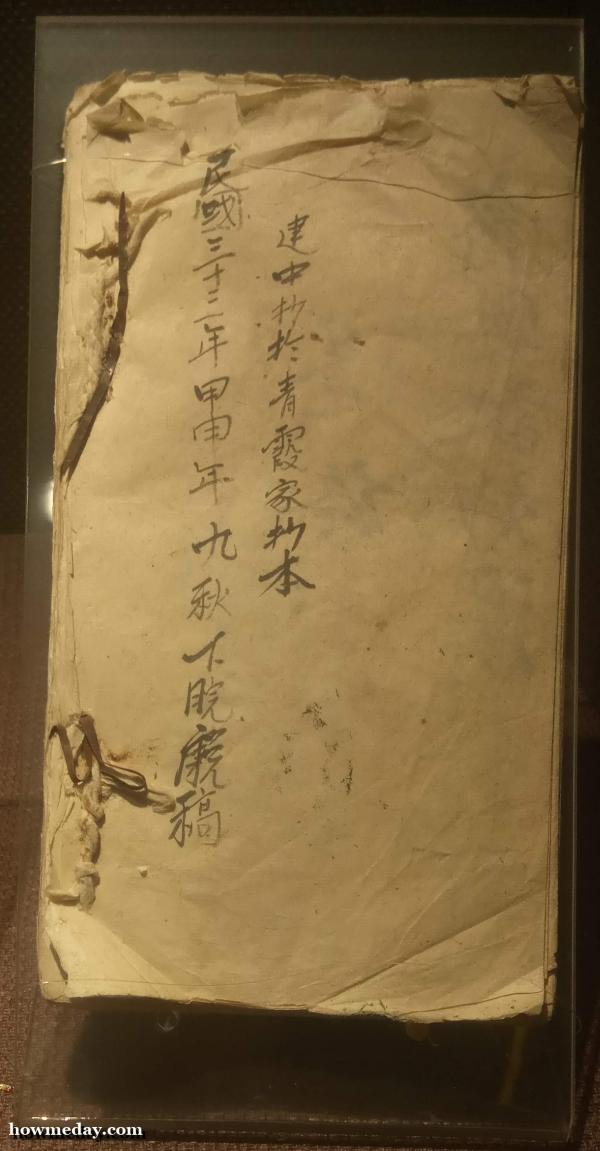 建中抄於青霞家抄本
民國三十三年甲申年九秋下脘稿
howmeday.com